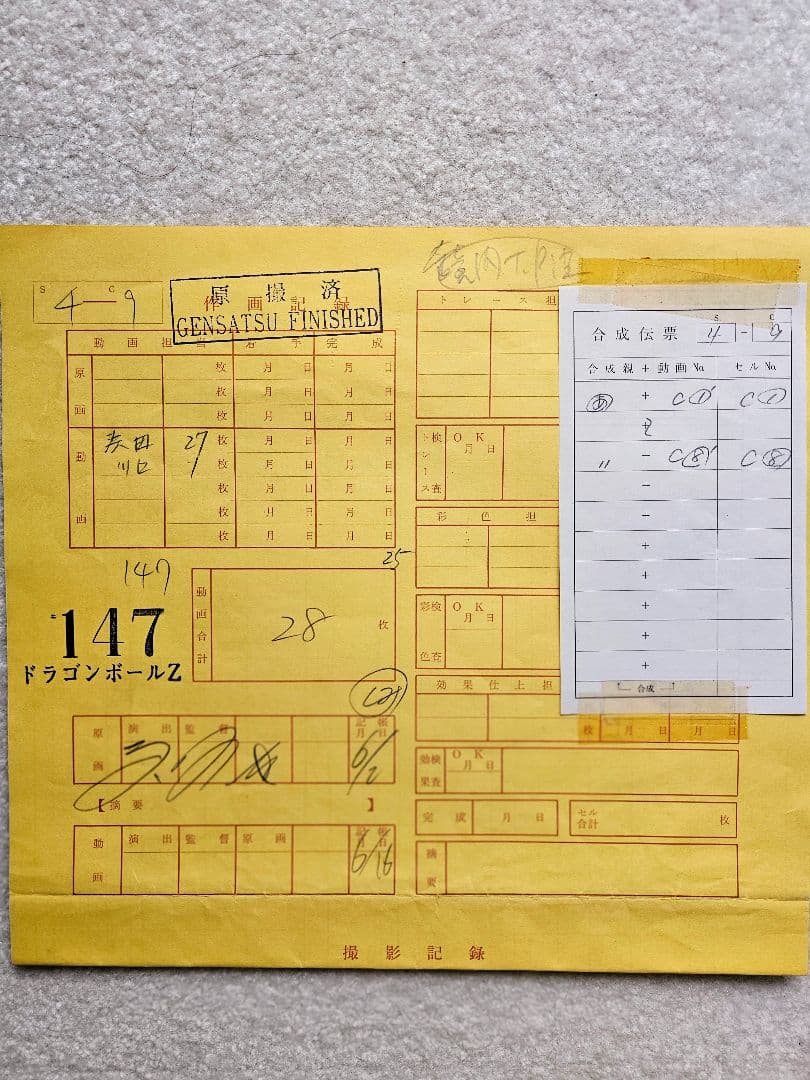 S C
4-9
原撮済
GENSATSU FINISHED
作画記録
動画担当 着手 完成
原画
枚 月 日 月 日
枚 月 日 月 日
枚 月 日 月 日
動画
27 枚 月 日 月 日
川口 1 枚 月 日 月 日
枚 月 日 月 日
枚 月 日 月 日
枚 月 日 月 日
147
147
ドラゴンボールZ
25
動画合計
28 枚
原画
演出 監督
記帳
月 日
6/2
【摘要 】
動画
演出 監督 原画
記帳
月 日
6/16
内T.P注
トレース担
トレース検査
OK
月 日
彩色担
彩色検査
OK
月 日
効果仕上担
枚 月 日 月 日
効果検査
OK
月 日
完成 月 日
セル合計 枚
摘要
合成伝票
S C
4-9
合成親+動画No. セルNo.
あ + C1' C1
〃 - C8' C8
-
+
+
+
+
+
+
合成
撮影記録